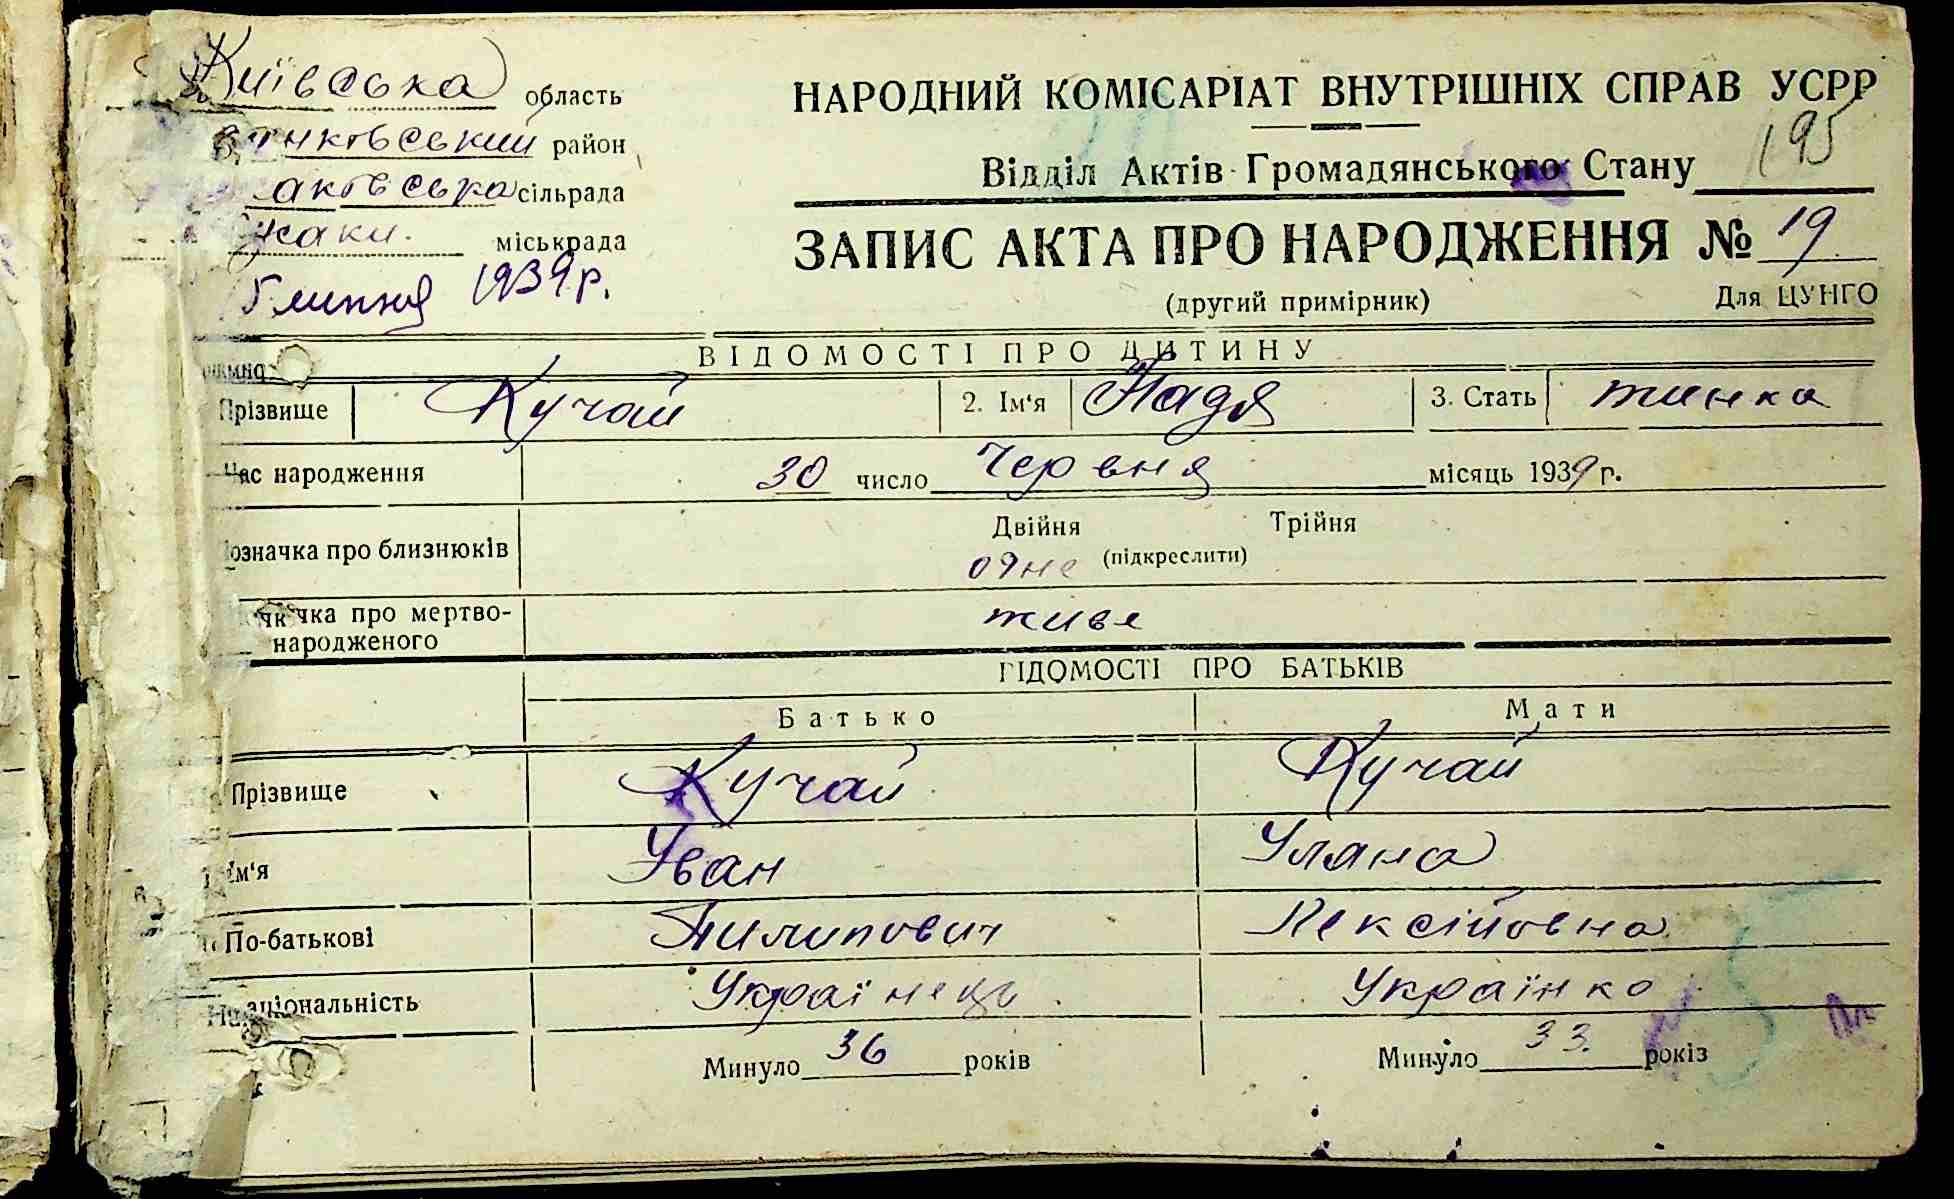 Київська область
район
сільрада
міськрада
липня 1939 р.
НАРОДНИЙ КОМІСАРІАТ ВНУТРІШНІХ СПРАВ УСРР
195
Відділ Актів Громадянського Стану
ЗАПИС АКТА ПРО НАРОДЖЕННЯ № 19
(другий примірник) Для ЦУНГО
ВІДОМОСТІ ПРО ДИТИНУ
Прізвище Кучай 2. Ім'я Надя 3. Стать жинка
Час народження 30 число Червня місяць 1939 г.
Двійня Трійня
означка про близнюків одне (підкреслити)
чка про мертво-
народженого живе
ВІДОМОСТІ ПРО БАТЬКІВ
Батько Мати
Прізвище Кучай Кучай
Ім'я Іван Уляна
По-батькові Пилипович Лексійовна
Національність Українець Українка
Минуло 36 років Минуло 33 років